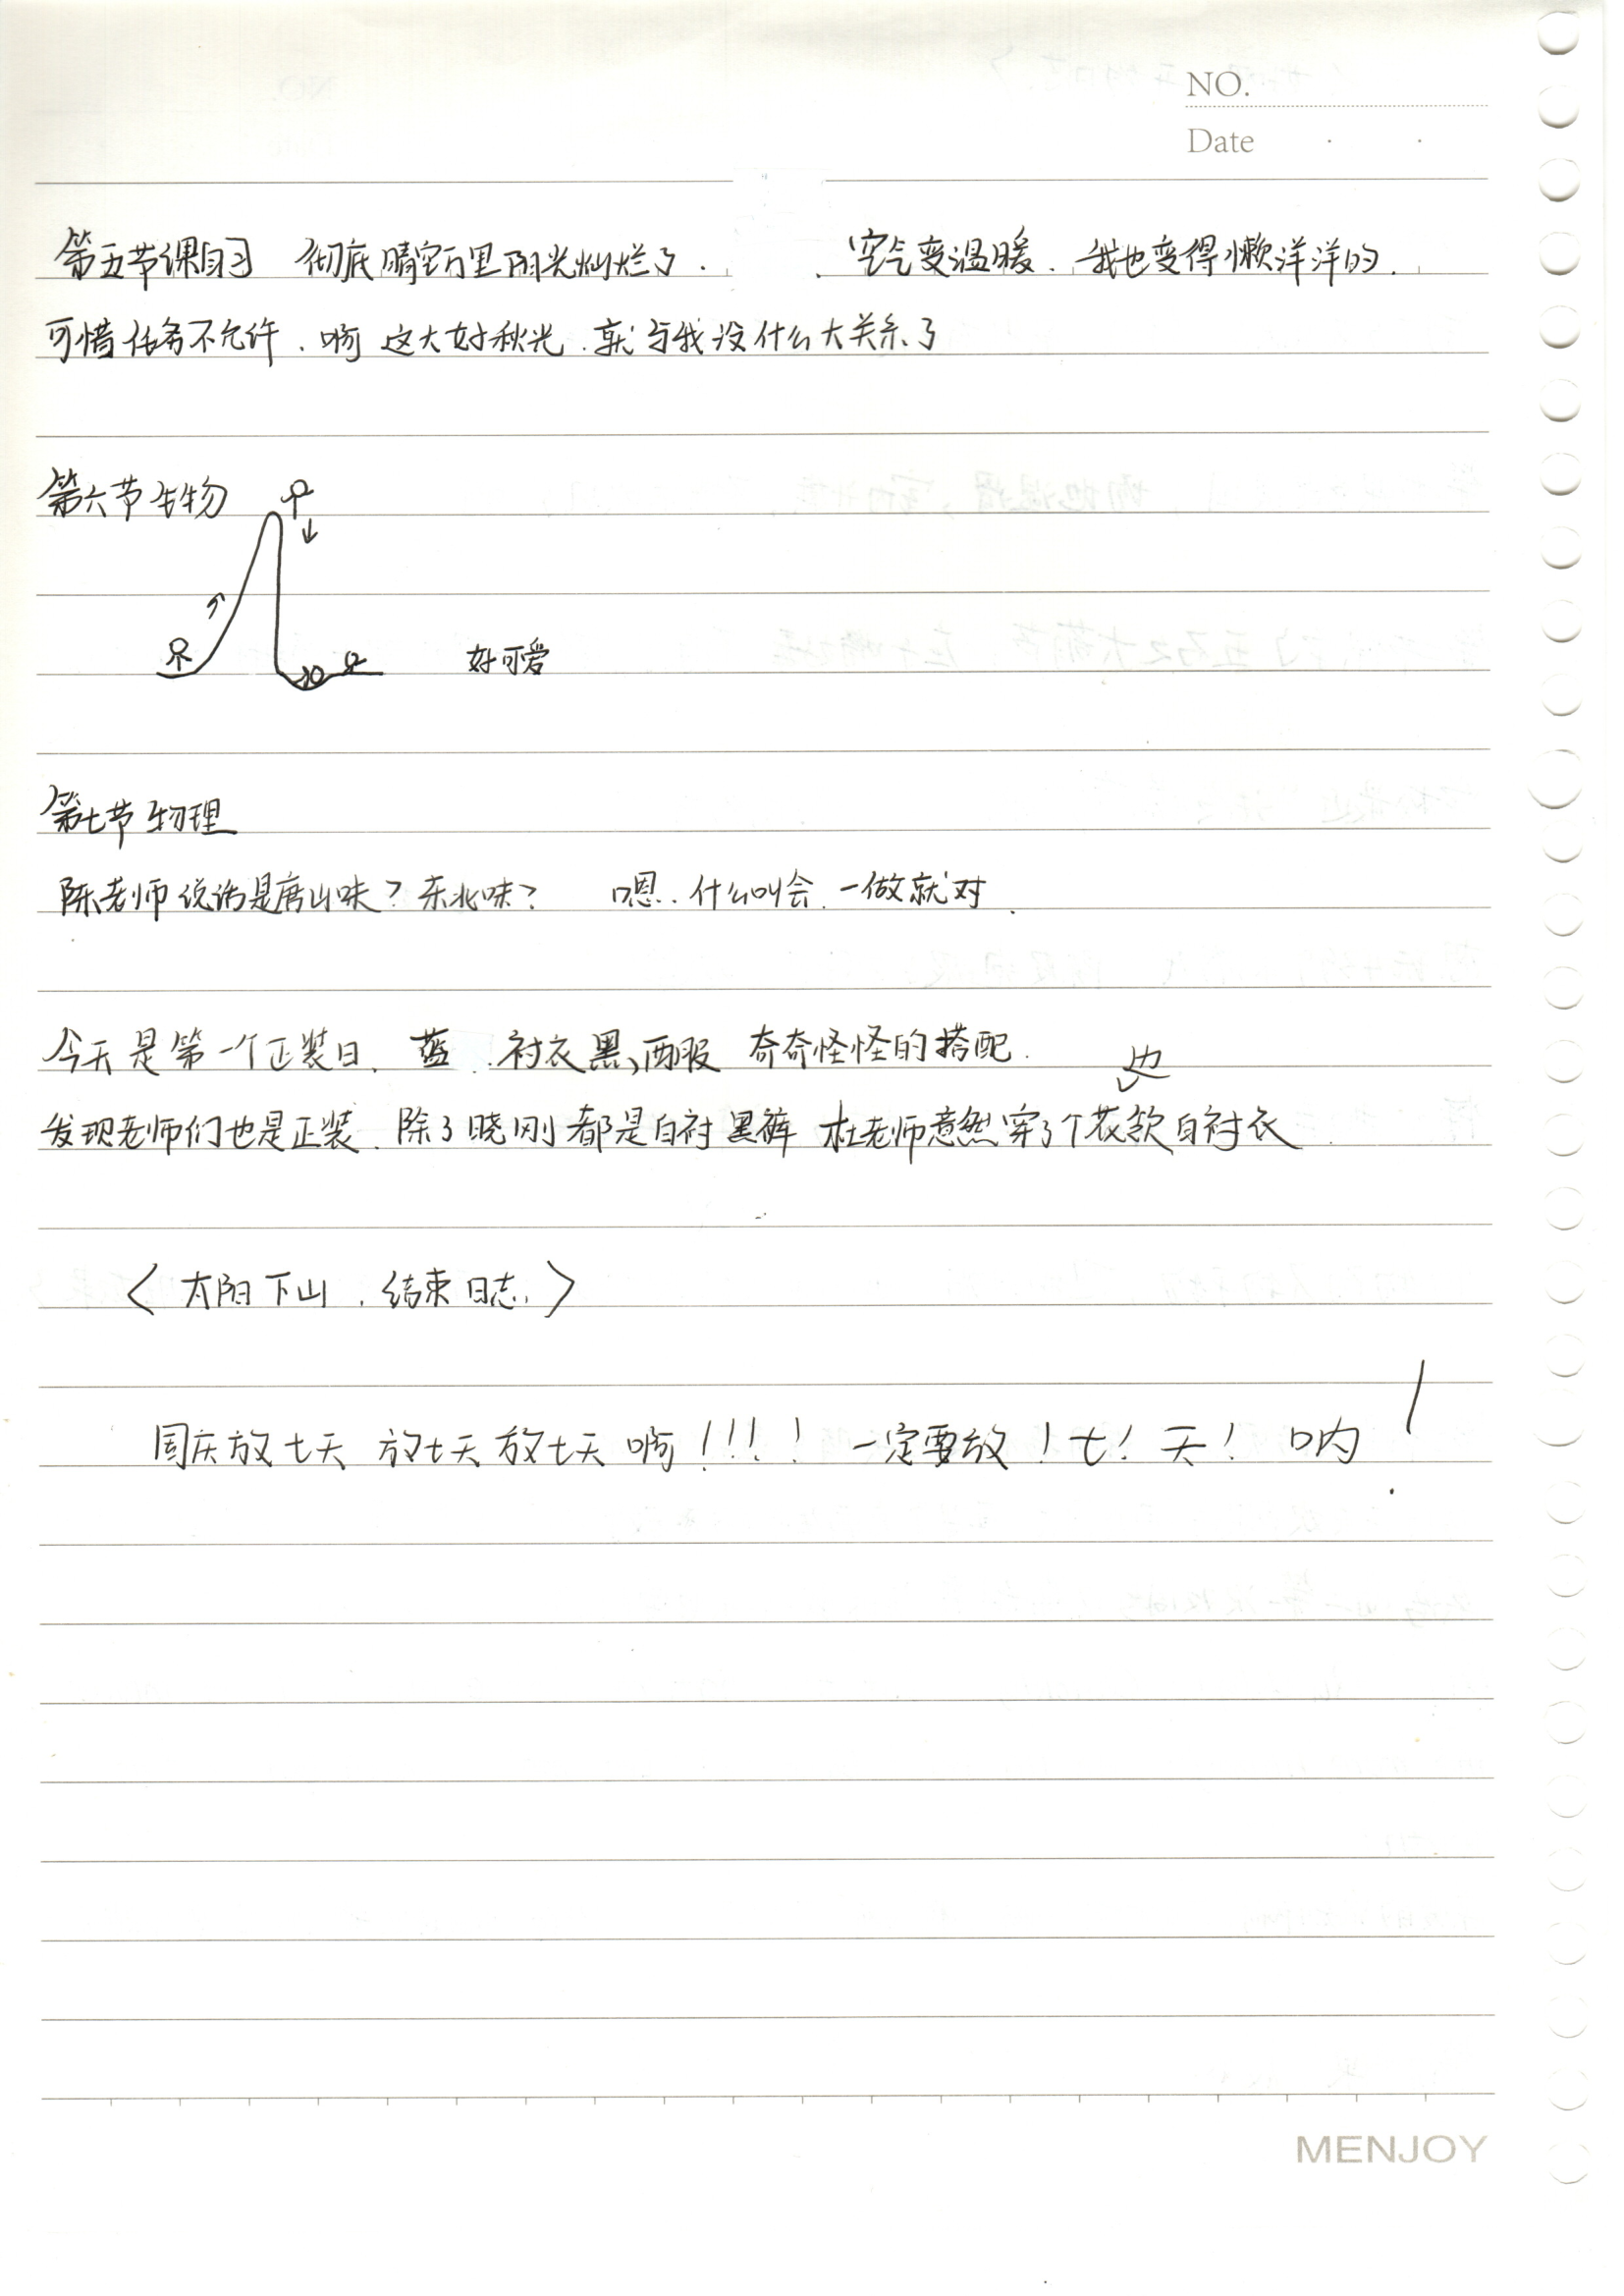 NO.
Date
第五节课自习 彻底晴空万里阳光灿烂了. 空气变温暖. 我也变得懒洋洋的.
可惜任务不允许. 啊 这大好秋光. 就与我没什么大关系了
第六节生物
好可爱
第七节物理
陈老师说话是唐山味? 东北味? 嗯.. 什么叫会. 一做就对.
今天是第一个正装日. 蓝衬衣黑西服 奇奇怪怪的搭配.
发现老师们也是正装. 除了晓刚都是白衬黑裤 杜老师竟然穿了个花边款白衬衣.
〈太阳下山. 结束日志.〉
国庆放七天 放七天 放七天 啊!!!! 一定要放!七!天! 呐!
MENJOY